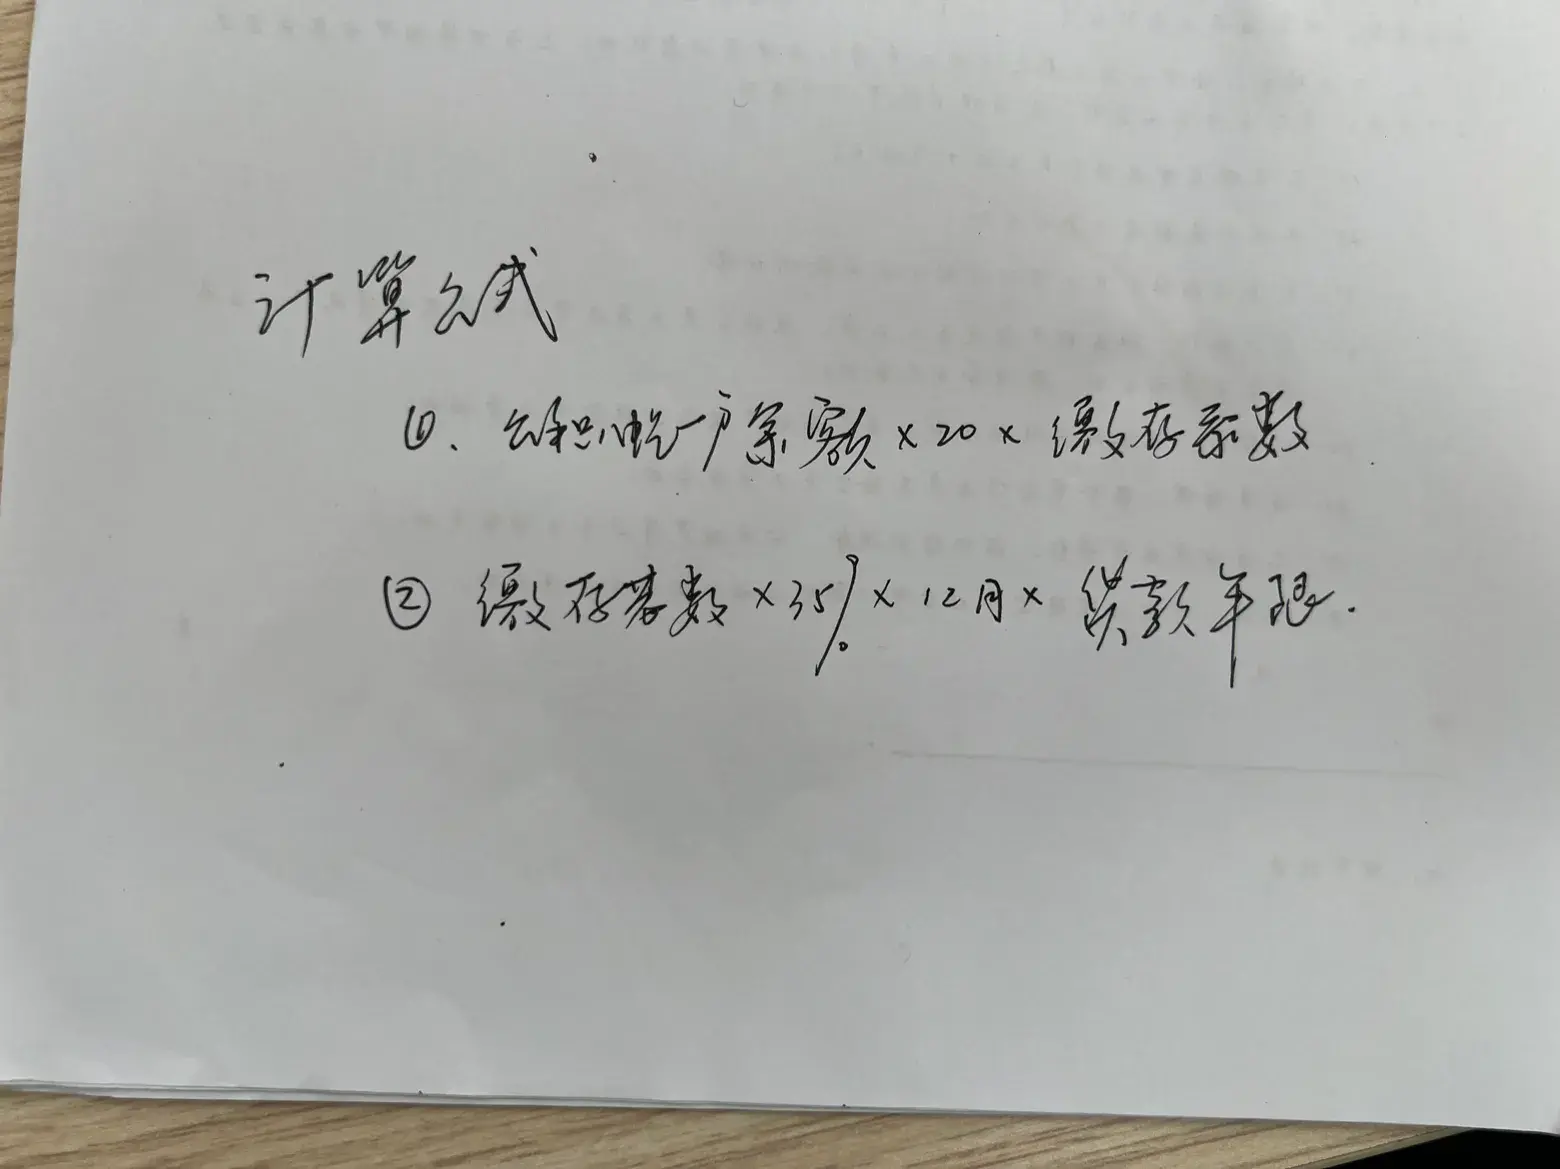 计算公式
①、公积金账户余额×20×缴存系数
② 缴存基数×35%×12月×贷款年限.